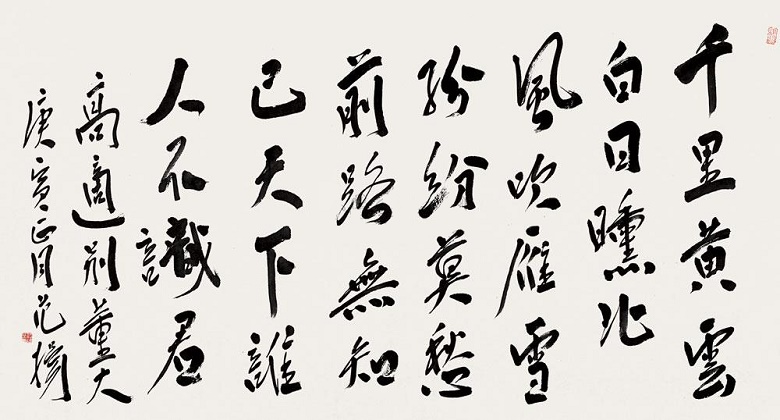 千里黄雲
白日曛北
風吹雁雪
紛紛莫愁
前路無知
己天下誰
人不識君
高適別董大
庚寅正月范揚